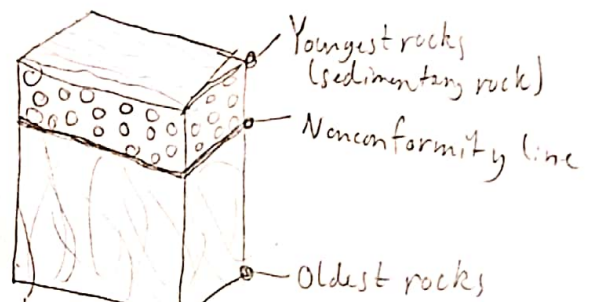 Youngest rocks
(sedimentary rock)
Nonconformity line
Oldest rocks